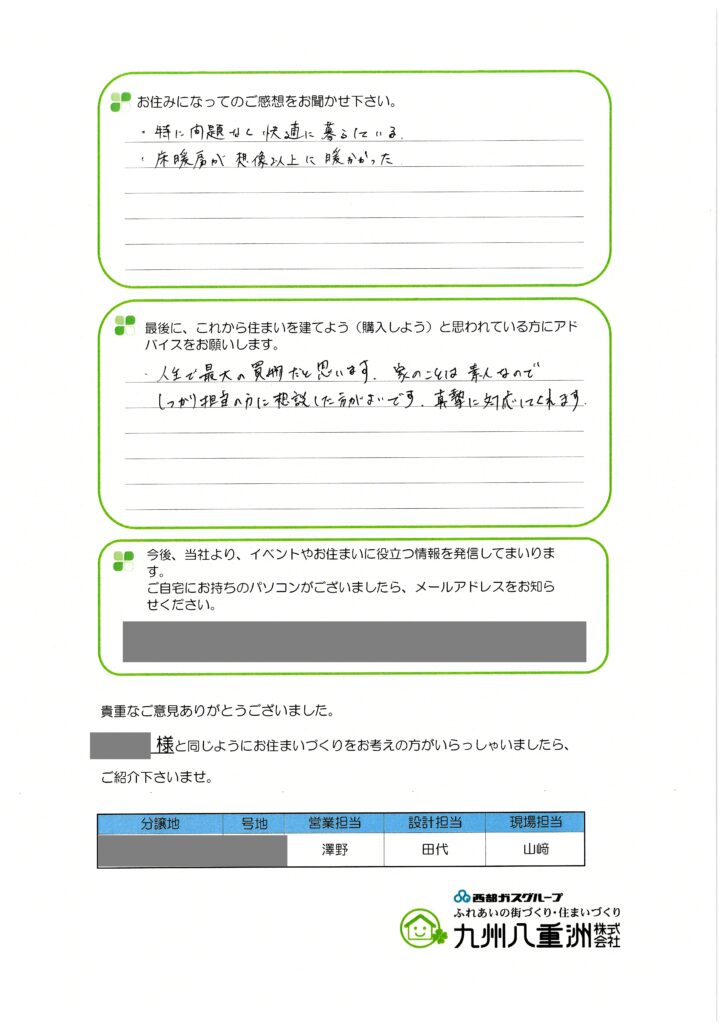 お住みになってのご感想をお聞かせ下さい。
・特に問題なく快適に暮らしている.
・床暖房が想像以上に暖かかった
最後に、これから住まいを建てよう（購入しよう）と思われている方にアド
バイスをお願いします。
・人生で最大の買物だと思います. 家のことは素人なので
しっかり担当の方に相談した方がよいです. 真摯に対応してくれます.
今後、当社より、イベントやお住まいに役立つ情報を発信してまいりま
す。
ご自宅にお持ちのパソコンがございましたら、メールアドレスをお知ら
せください。
貴重なご意見ありがとうございました。
様と同じようにお住まいづくりをお考えの方がいらっしゃいましたら、
ご紹介下さいませ。
分譲地 号地 営業担当 設計担当 現場担当
澤野 田代 山﨑
西部ガスグループ
ふれあいの街づくり・住まいづくり
九州八重洲株式会社